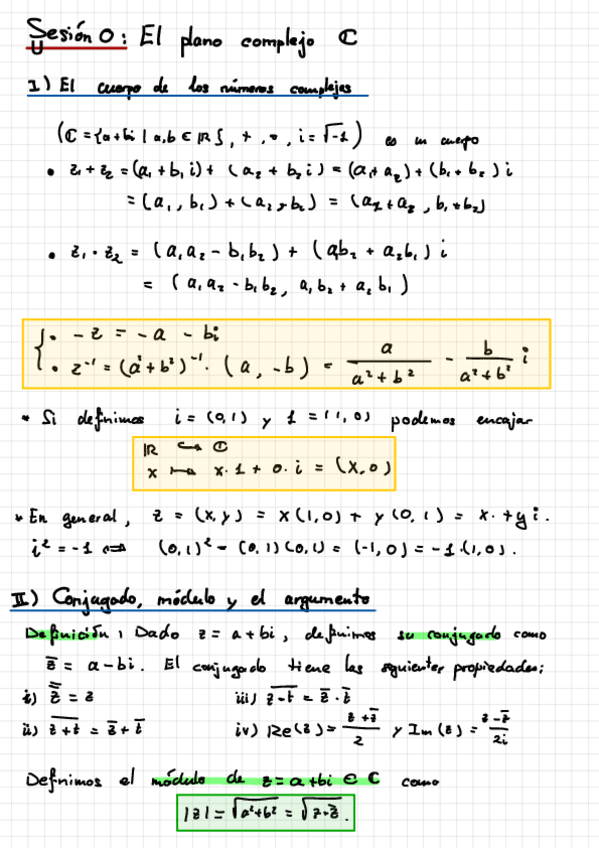 Sesión 0: El plano complejo ℂ
I) El cuerpo de los números complejos
(ℂ = {a+bi | a,b ∈ ℝ}, +, ·, i = √-1) es un cuerpo
• z₁ + z₂ = (a₁ + b₁i) + (a₂ + b₂i) = (a₁ + a₂) + (b₁ + b₂)i
= (a₁, b₁) + (a₂, b₂) = (a₁ + a₂, b₁ + b₂)
• z₁ · z₂ = (a₁a₂ - b₁b₂) + (a₁b₂ + a₂b₁)i
= (a₁a₂ - b₁b₂, a₁b₂ + a₂b₁)
{ • -z = -a - bi
• z⁻¹ = (a² + b²)⁻¹ · (a, -b) = a/(a² + b²) - b/(a² + b²) i
* Si definimos i = (0,1) y 1 = (1,0) podemos encajar
ℝ ↪ ℂ
x ↦ x·1 + 0·i = (x,0)
* En general, z = (x,y) = x(1,0) + y(0,1) = x·+yi.
i² = -1 ⇔ (0,1)² = (0,1)(0,1) = (-1,0) = -1·(1,0).
II) Conjugado, módulo y el argumento
Definición: Dado z = a+bi, definimos su conjugado como
z̅ = a-bi. El conjugado tiene las siguientes propiedades:
i) z̿ = z iii) \overline{z·t} = z̅·t̅
ii) \overline{z+t} = z̅+t̅ iv) Re(z) = (z+z̅)/2 y Im(z) = (z-z̅)/2i
Definimos el módulo de z = a+bi ∈ ℂ como
|z| = √(a²+b²) = √(z·z̅).